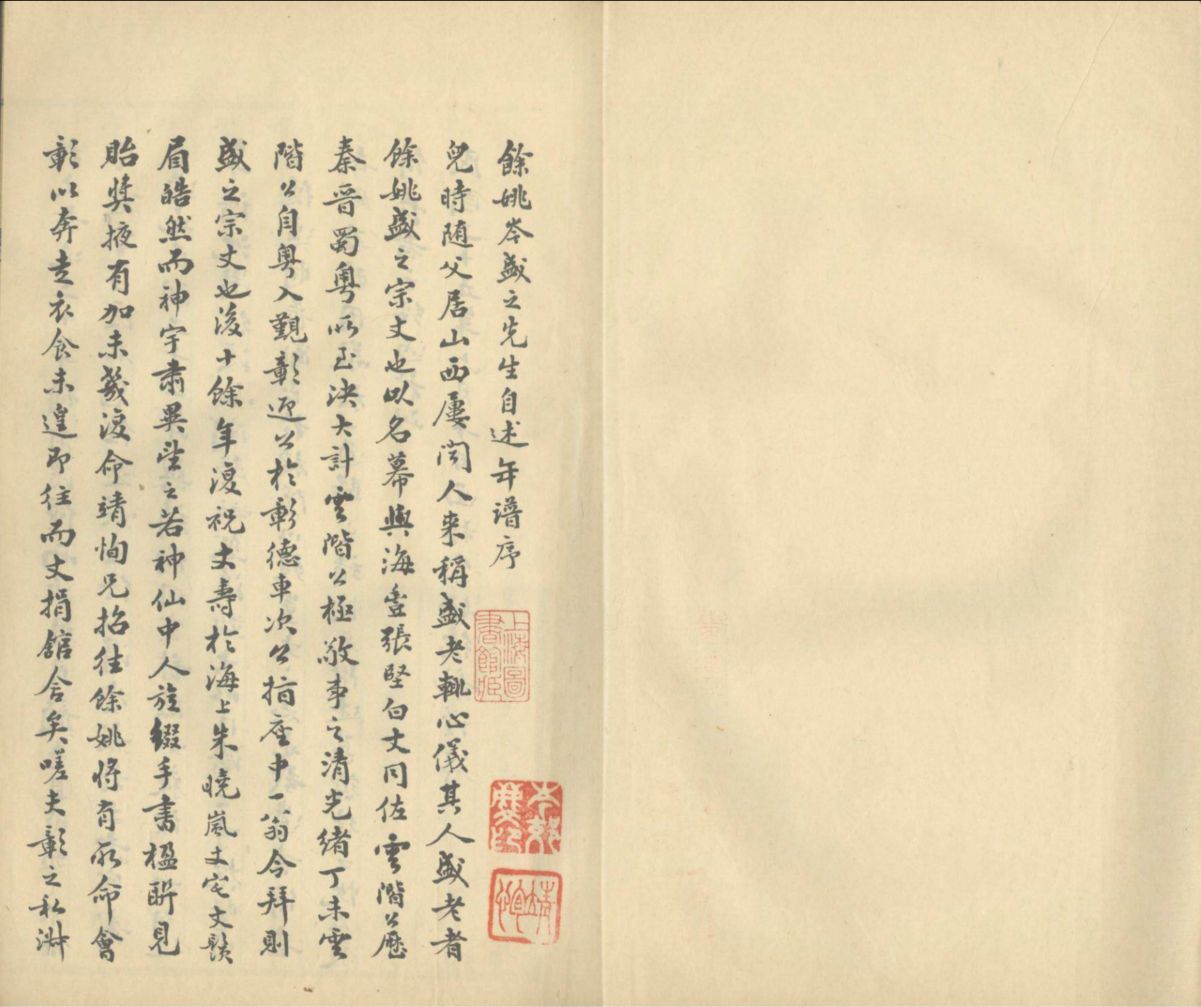 餘姚岑盛之先生自述年譜序
兒時随父居山西屢聞人来稱盛老輒心儀其人盛老者
餘姚盛之宗丈也以名幕與海壹張堅白丈同佐雲階公歷
秦晋蜀粤所至決大計雲階公極敬事之清光緒丁未雲
階公自粤入覲彰迎公於彰德車次公指座中一翁令拜則
盛之宗丈也後十餘年復祝丈壽於海上朱曉嵐丈宅丈鬚
眉皓然而神宇肅異望之若神仙中人旋綴手書楹聯見
貽奬掖有加未幾復命靖恂兄招往餘姚将有所命會
彰以奔走衣食未遑即往而丈捐舘舍矣嗟夫彰之私淑
上海圖
書館藏